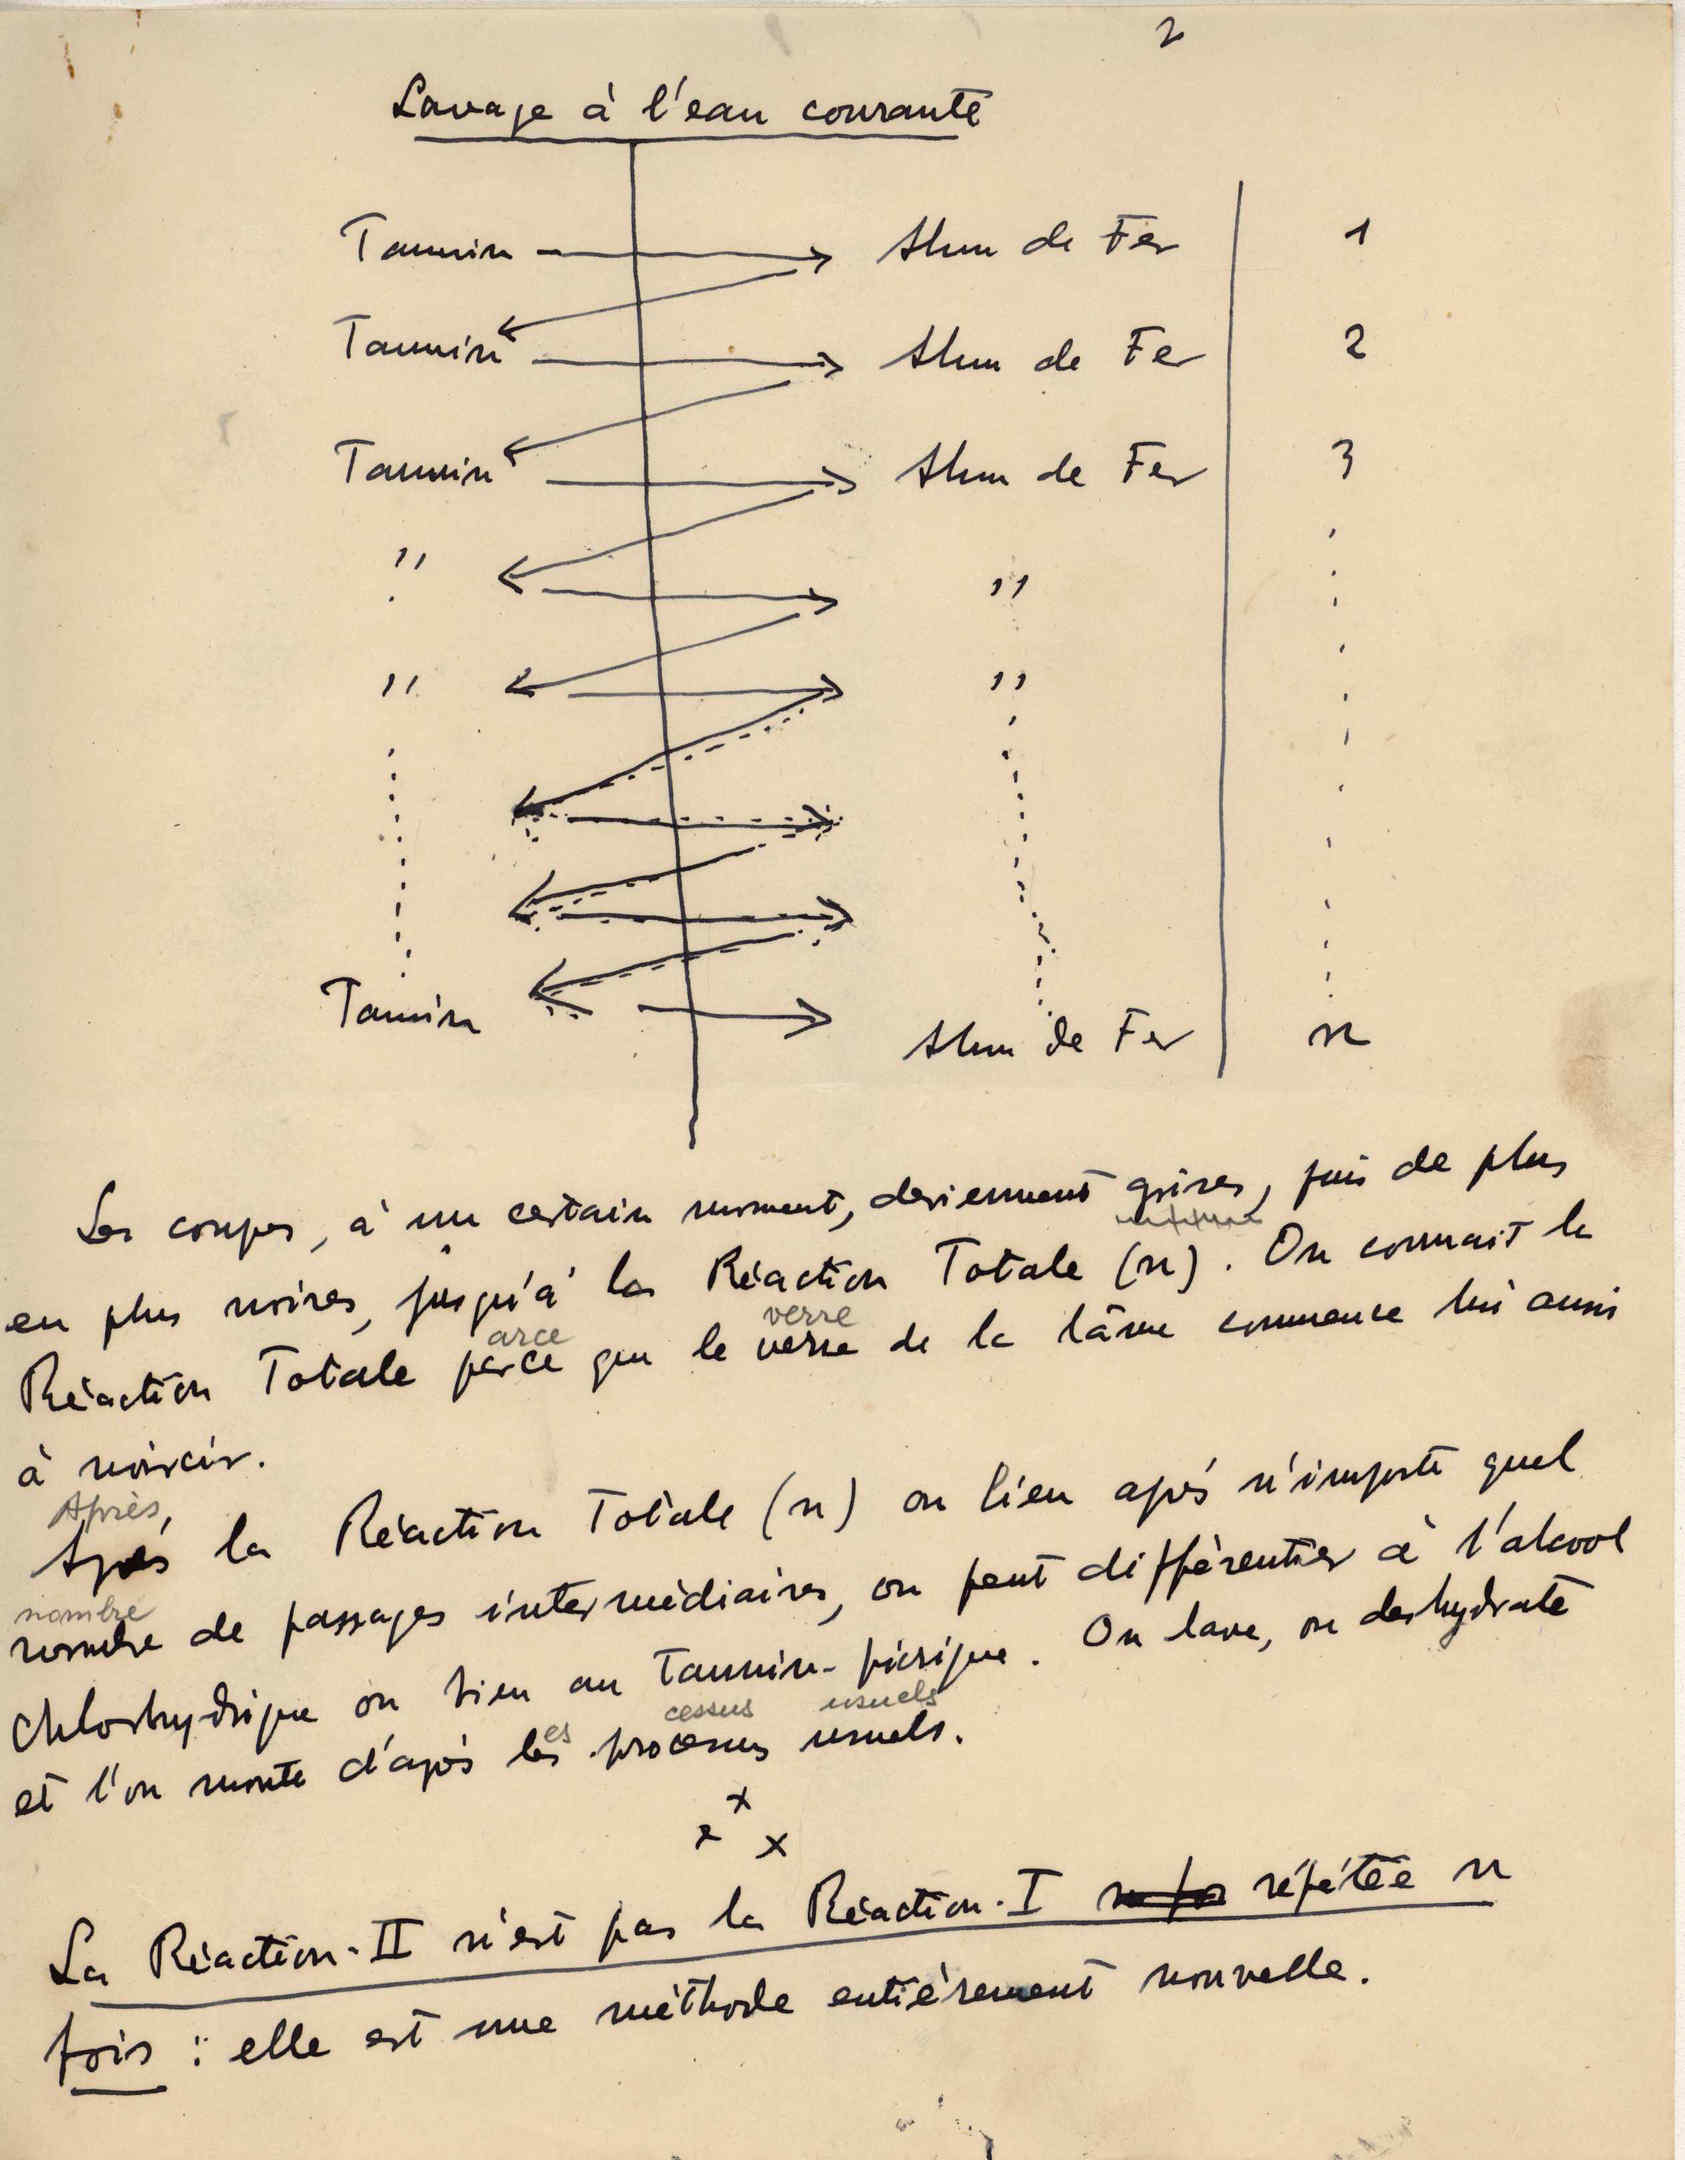 2
Lavage à l'eau courante
Tannin Alun de Fer 1
Tannin Alun de Fer 2
Tannin Alun de Fer 3
" "
" "
Tannin Alun de Fer n
Les coupes, à un certain moment, deviennent grises, puis de plus
en plus noires, jusqu'à la Réaction Totale (n). On connait la
arce verre
Réaction Totale parce que le verre de la lâme commence lui aussi
à noircir.
Après,
Après la Réaction Totale (n) ou bien après n'importe quel
nombre
nombre de passages intermédiaires, on peut différentier à l'alcool
Chlorhydrique ou bien au Tannin-picrique. On lave, on deshydrate
es cessus usuels
et l'on monte d'après les processus usuels.
x
x x
La Réaction-II n'est pas la Réaction-I répétée n
fois : elle est une méthode entiérement nouvelle.